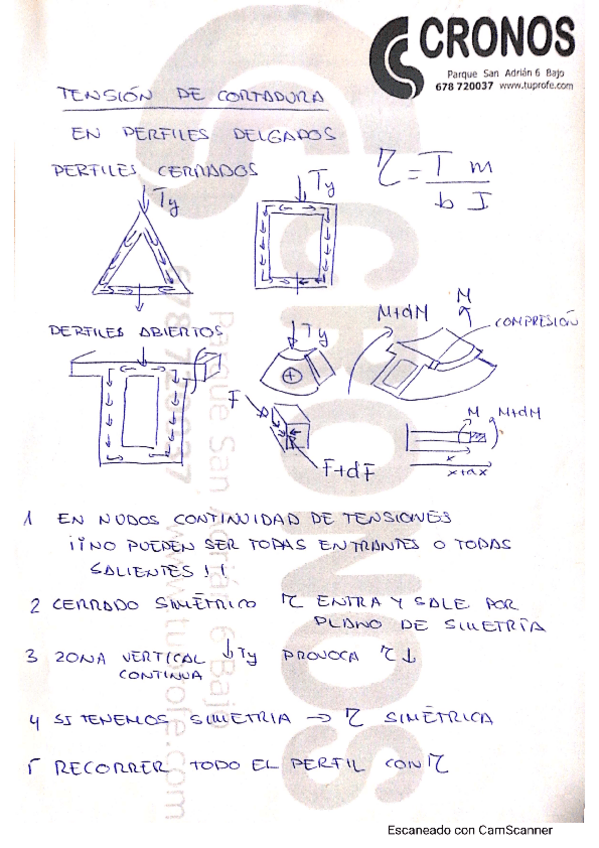 CRONOS
Parque San Adrián 6 Bajo
678 720037 www.tuprofe.com
TENSIÓN DE CORTADURA
EN PERFILES DELGADOS
PERFILES CERRADOS
Ty
Ty
τ = T m / b I
PERFILES ABIERTOS
Ty
M+dM
M
COMPRESIÓN
F
F+dF
M
M+dM
x
x+dx
1 EN NUDOS CONTINUIDAD DE TENSIONES
¡¡NO PUEDEN SER TODAS ENTRANTES O TODAS
SALIENTES!!
2 CERRADO SIMÉTRICO τ ENTRA Y SALE POR
PLANO DE SIMETRÍA
3 ZONA VERTICAL ↓Ty PROVOCA τ↓
CONTINUA
4 SI TENEMOS SIMETRIA → τ SIMÉTRICA
5 RECORRER TODO EL PERFIL CON τ
CRONOS
678 720037
Parque San Adrián 6 Bajo
www.tuprofe.com
Escaneado con CamScanner